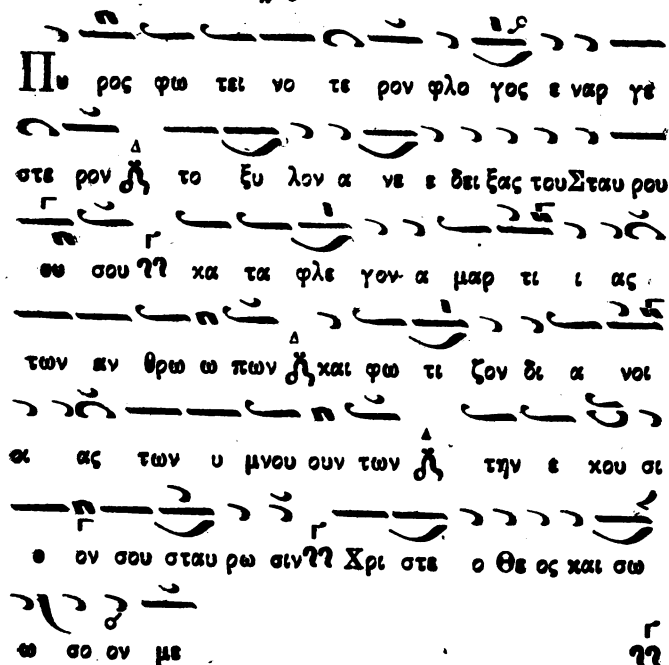 Πυ ρος φω τει νο τε ρον φλο γος ε ναρ γε
στε ρον Δ το ξυ λον α νε ε δει ξας του Σταυ ρου
ου σου Γ κα τα φλε γον α μαρ τι ι ας
των αν θρω ω πων Δ και φω τι ζον δι α νοι
οι ας των υ μνου ουν των Δ την ε κου σι
ο ον σου σταυ ρω σιν Γ Χρι στε ο Θε ος και σω
ω σο ον με Γ